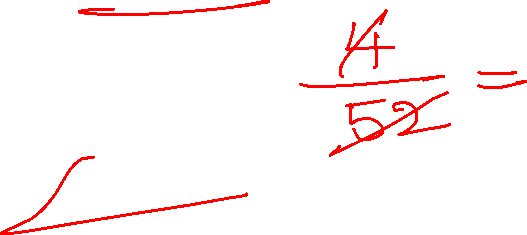 4/52 =